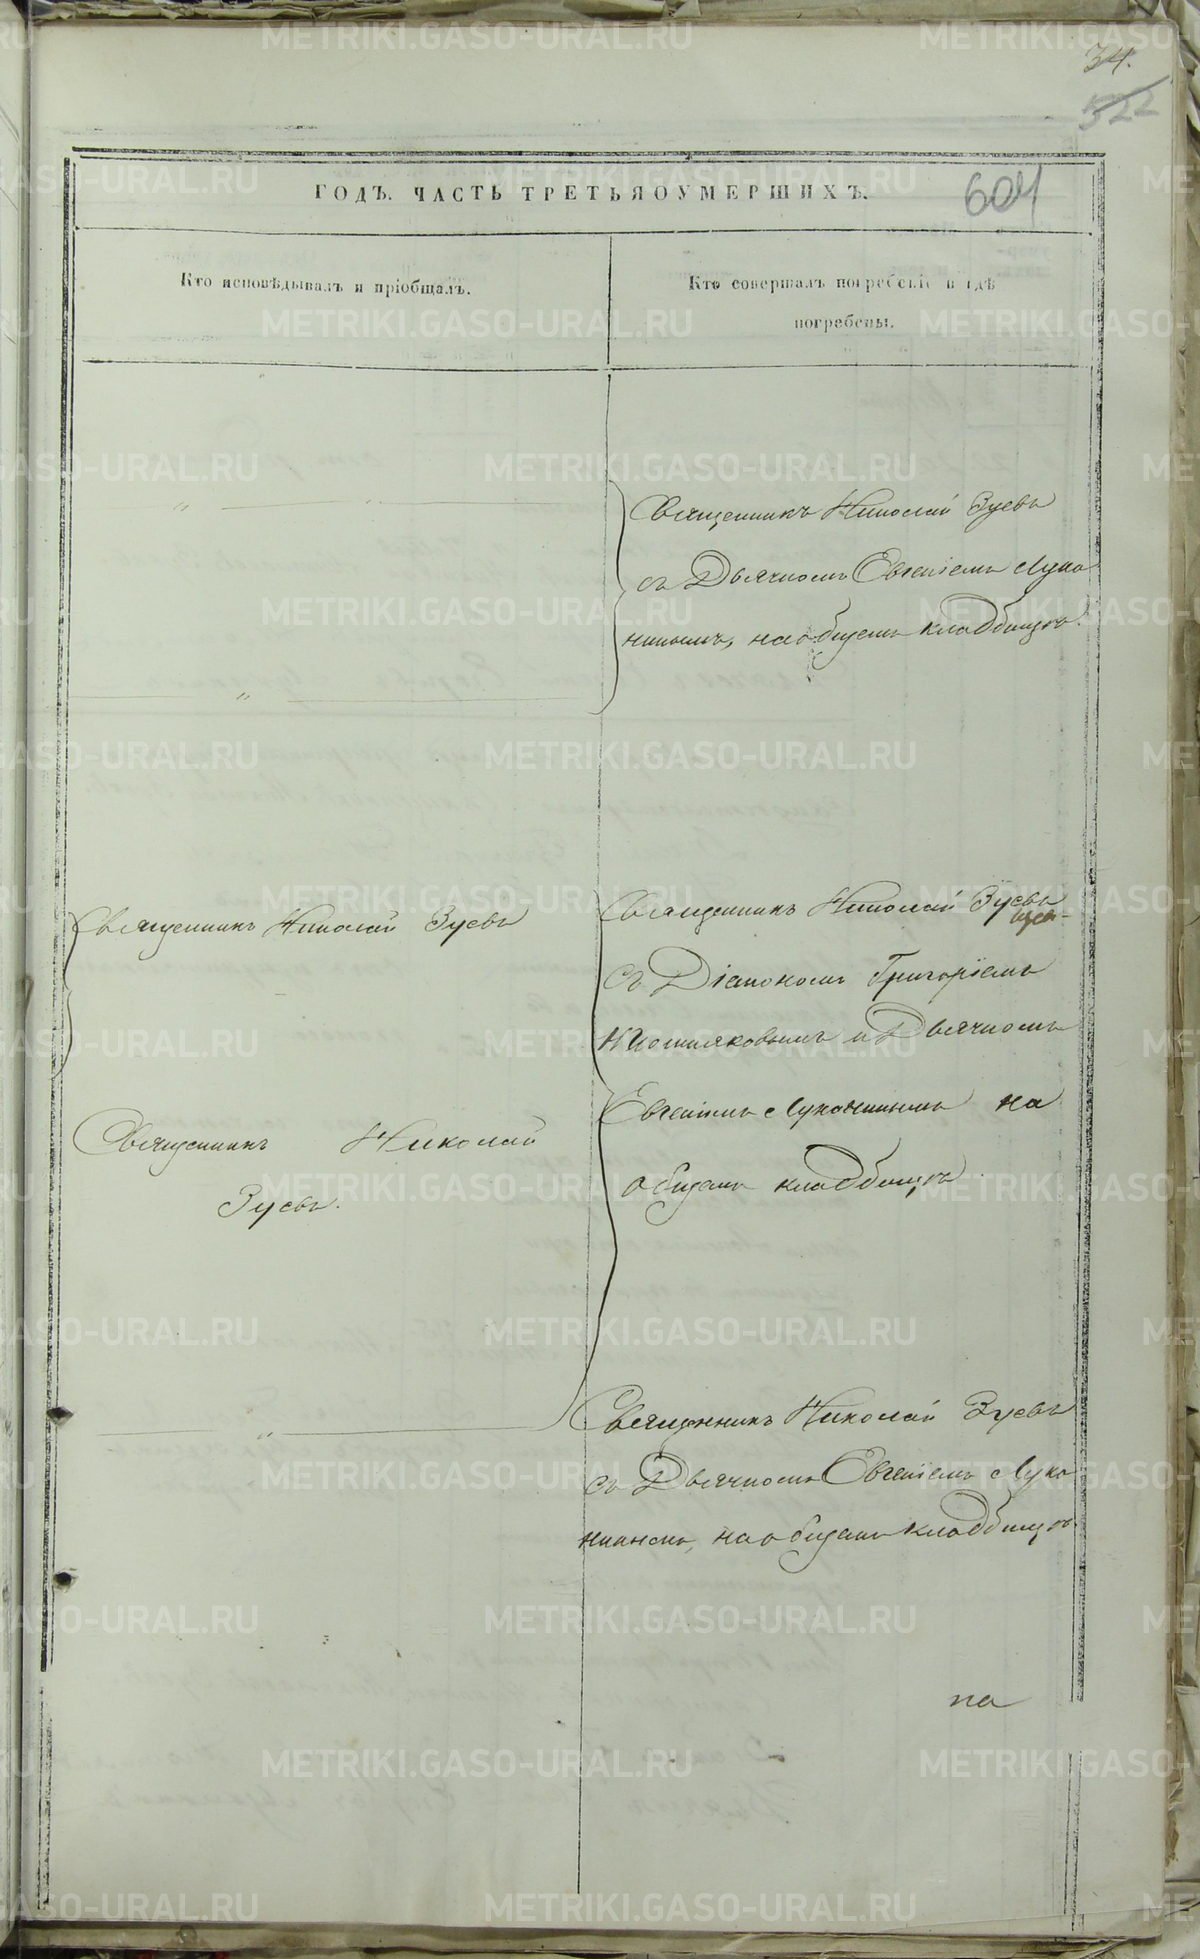 34.
522
604
ГОДЪ. ЧАСТЬ ТРЕТЬЯ О УМЕРШИХЪ.
Кто исповѣдывалъ и пріобщалъ.
Кто совершалъ погребеніе и гдѣ
погребены.
Священникъ Николай Зуевъ
съ Дьячкомъ Евгеніемъ Луко
нинымъ, на общемъ кладбищѣ.
Священникъ Николай Зуевъ
Священникъ Николай
Зуевъ.
Священникъ Николай Зуевъ
съ Діакономъ Григоріемъ
и Дьячкомъ
Евгеніемъ Луконинымъ на
общемъ кладбищѣ
Священникъ Николай Зуевъ
съ Дьячкомъ Евгеніемъ Луко
нинымъ, на общемъ кладбищѣ.
на
METRIKI.GASO-URAL.RU